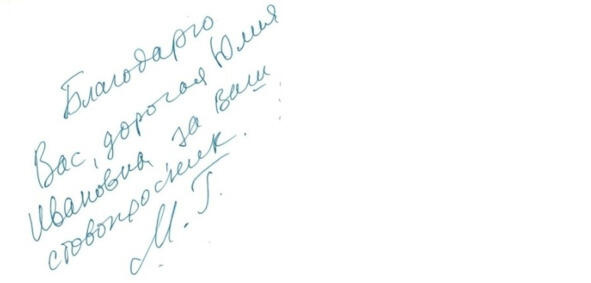 Благодарю
Вас, дорогая Юлия
Ивановна за Ваш
стовопросник.
М. Г.